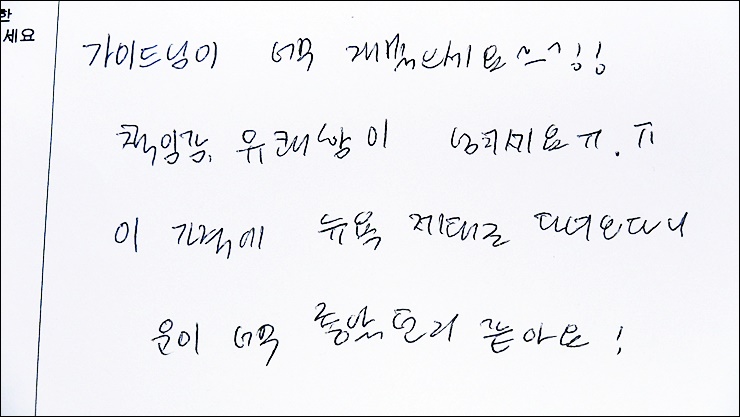 한
세요
가이드님이 너무 재밌으세요~^;;
책임감, 유쾌함이 넘치세요ㅠ.ㅠ
이 가격에 뉴욕 제대로 다녀오다니
운이 너무 좋았
같아요!